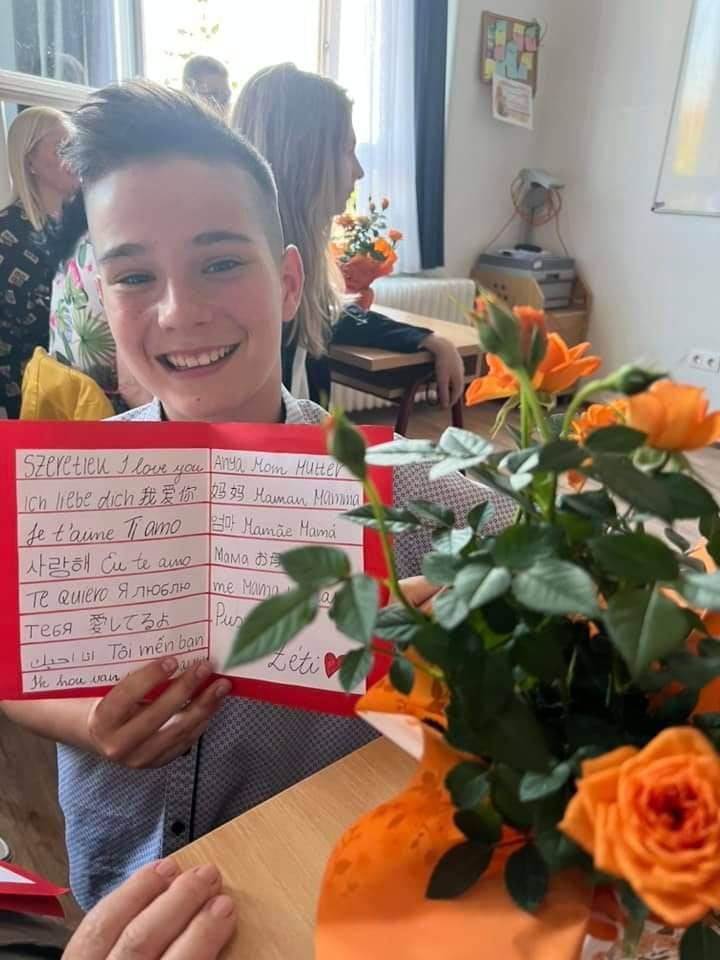 Szeretlek I love you
Ich liebe dich 我愛你
Je t'aime Ti amo
사랑해 Eu te amo
Te quiero Я люблю
тебя 愛してるよ
انا احبك Tôi mến bạn
Ik hou van
Anya Mom Mutter
妈妈 Maman Mamma
엄마 Mamãe Mamá
Мама お
me Mama
Zéti